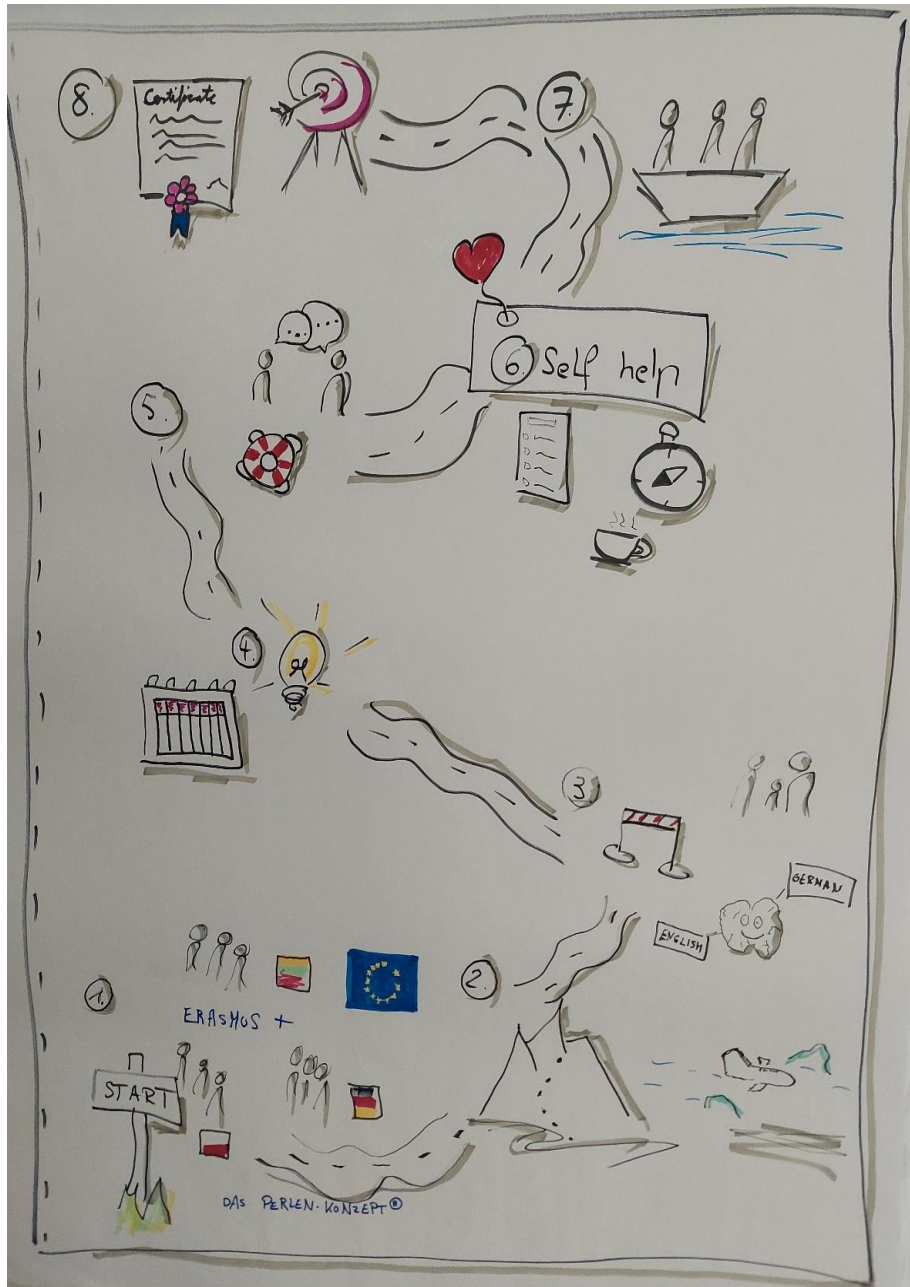 8.
Certificate
7.
6. Self help
5.
4.
3
GERMAN
ENGLISH
2.
1.
ERASMUS +
START
DAS PERLEN-KONZEPT®